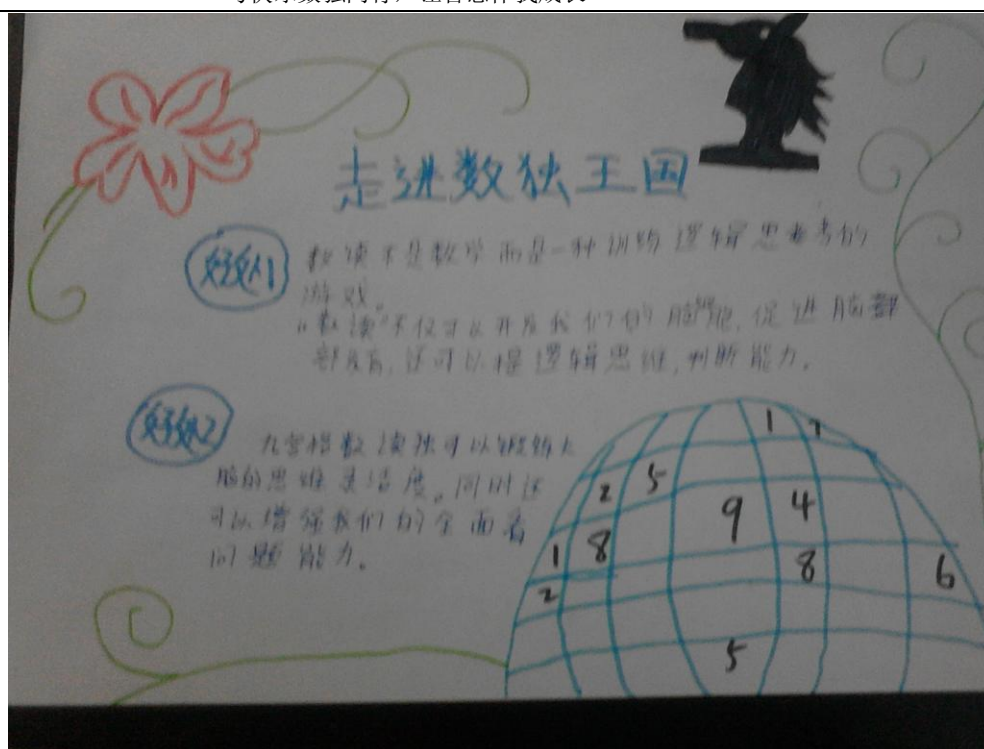 走进数独王国
好处1
数读不是数学而是一种训练逻辑思考的
游戏。
"数读"不仅可以开发我们的脑细胞,促进脑部
部发育,还可以提逻辑思维,判断能力。
好处2
九宫格数读独可以锻炼大
脑的思维灵活度。同时还
可以增强我们的全面看
问题能力。
1 7
2 5 9 4
1 8 8 6
2
5